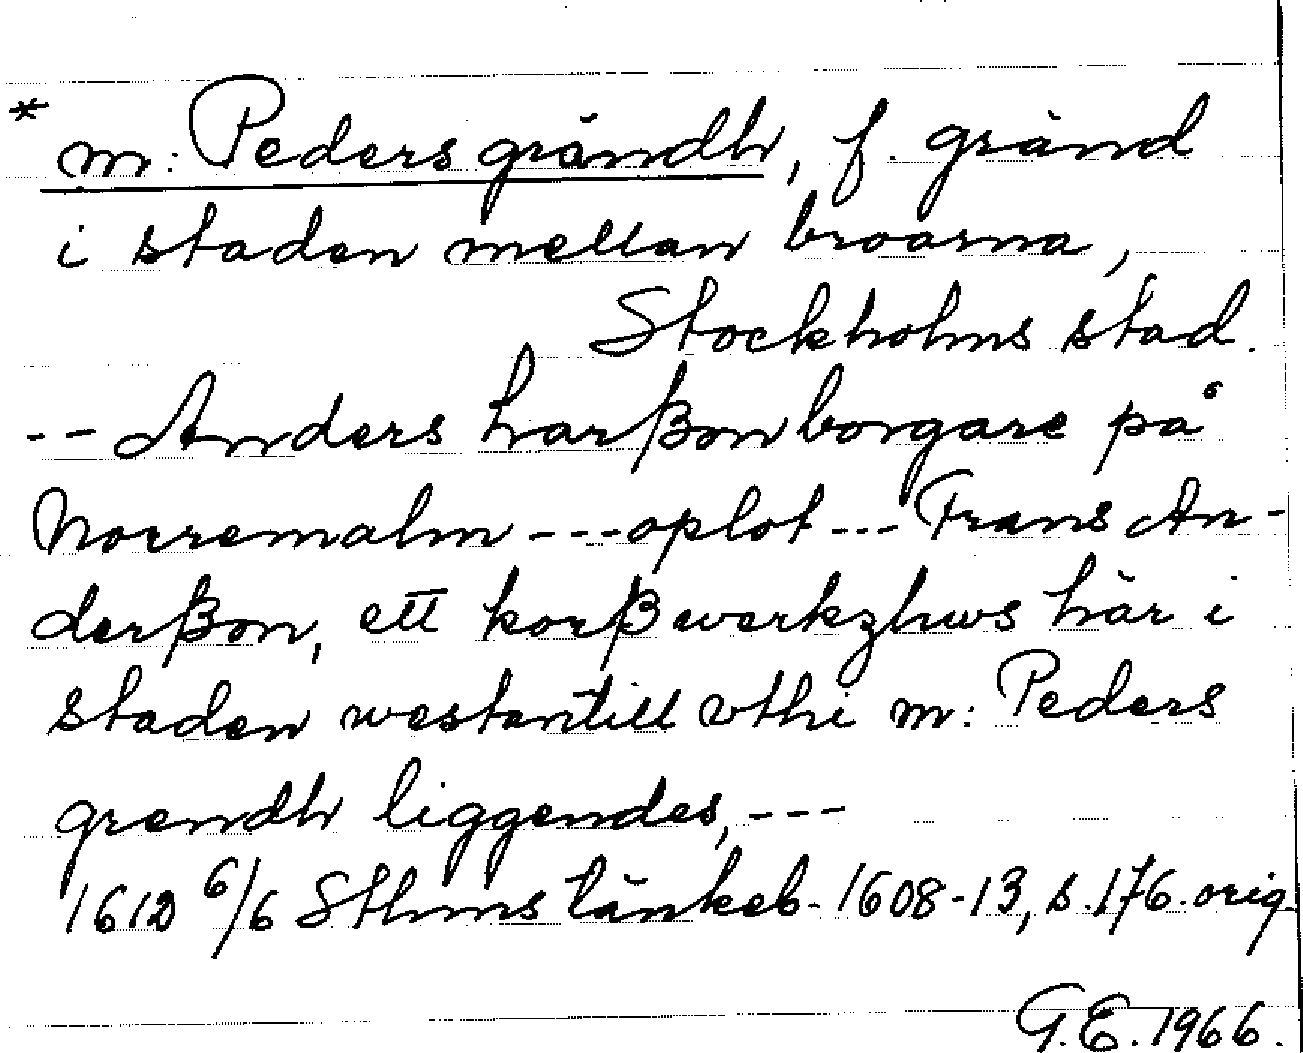 * m: Peders grändh, f. gränd
i staden mellan broarna,
Stockholms stad.
-- Anders harßon borgare på
Norremalm --- oplot --- Frans An-
derßon, ett korßwerkzhws här i
staden westantill vthi m: Peders
grendh liggendes, ---
1612 6/6 Sthms tänkeb. 1608-13, s. 176. orig.
G.E. 1966.